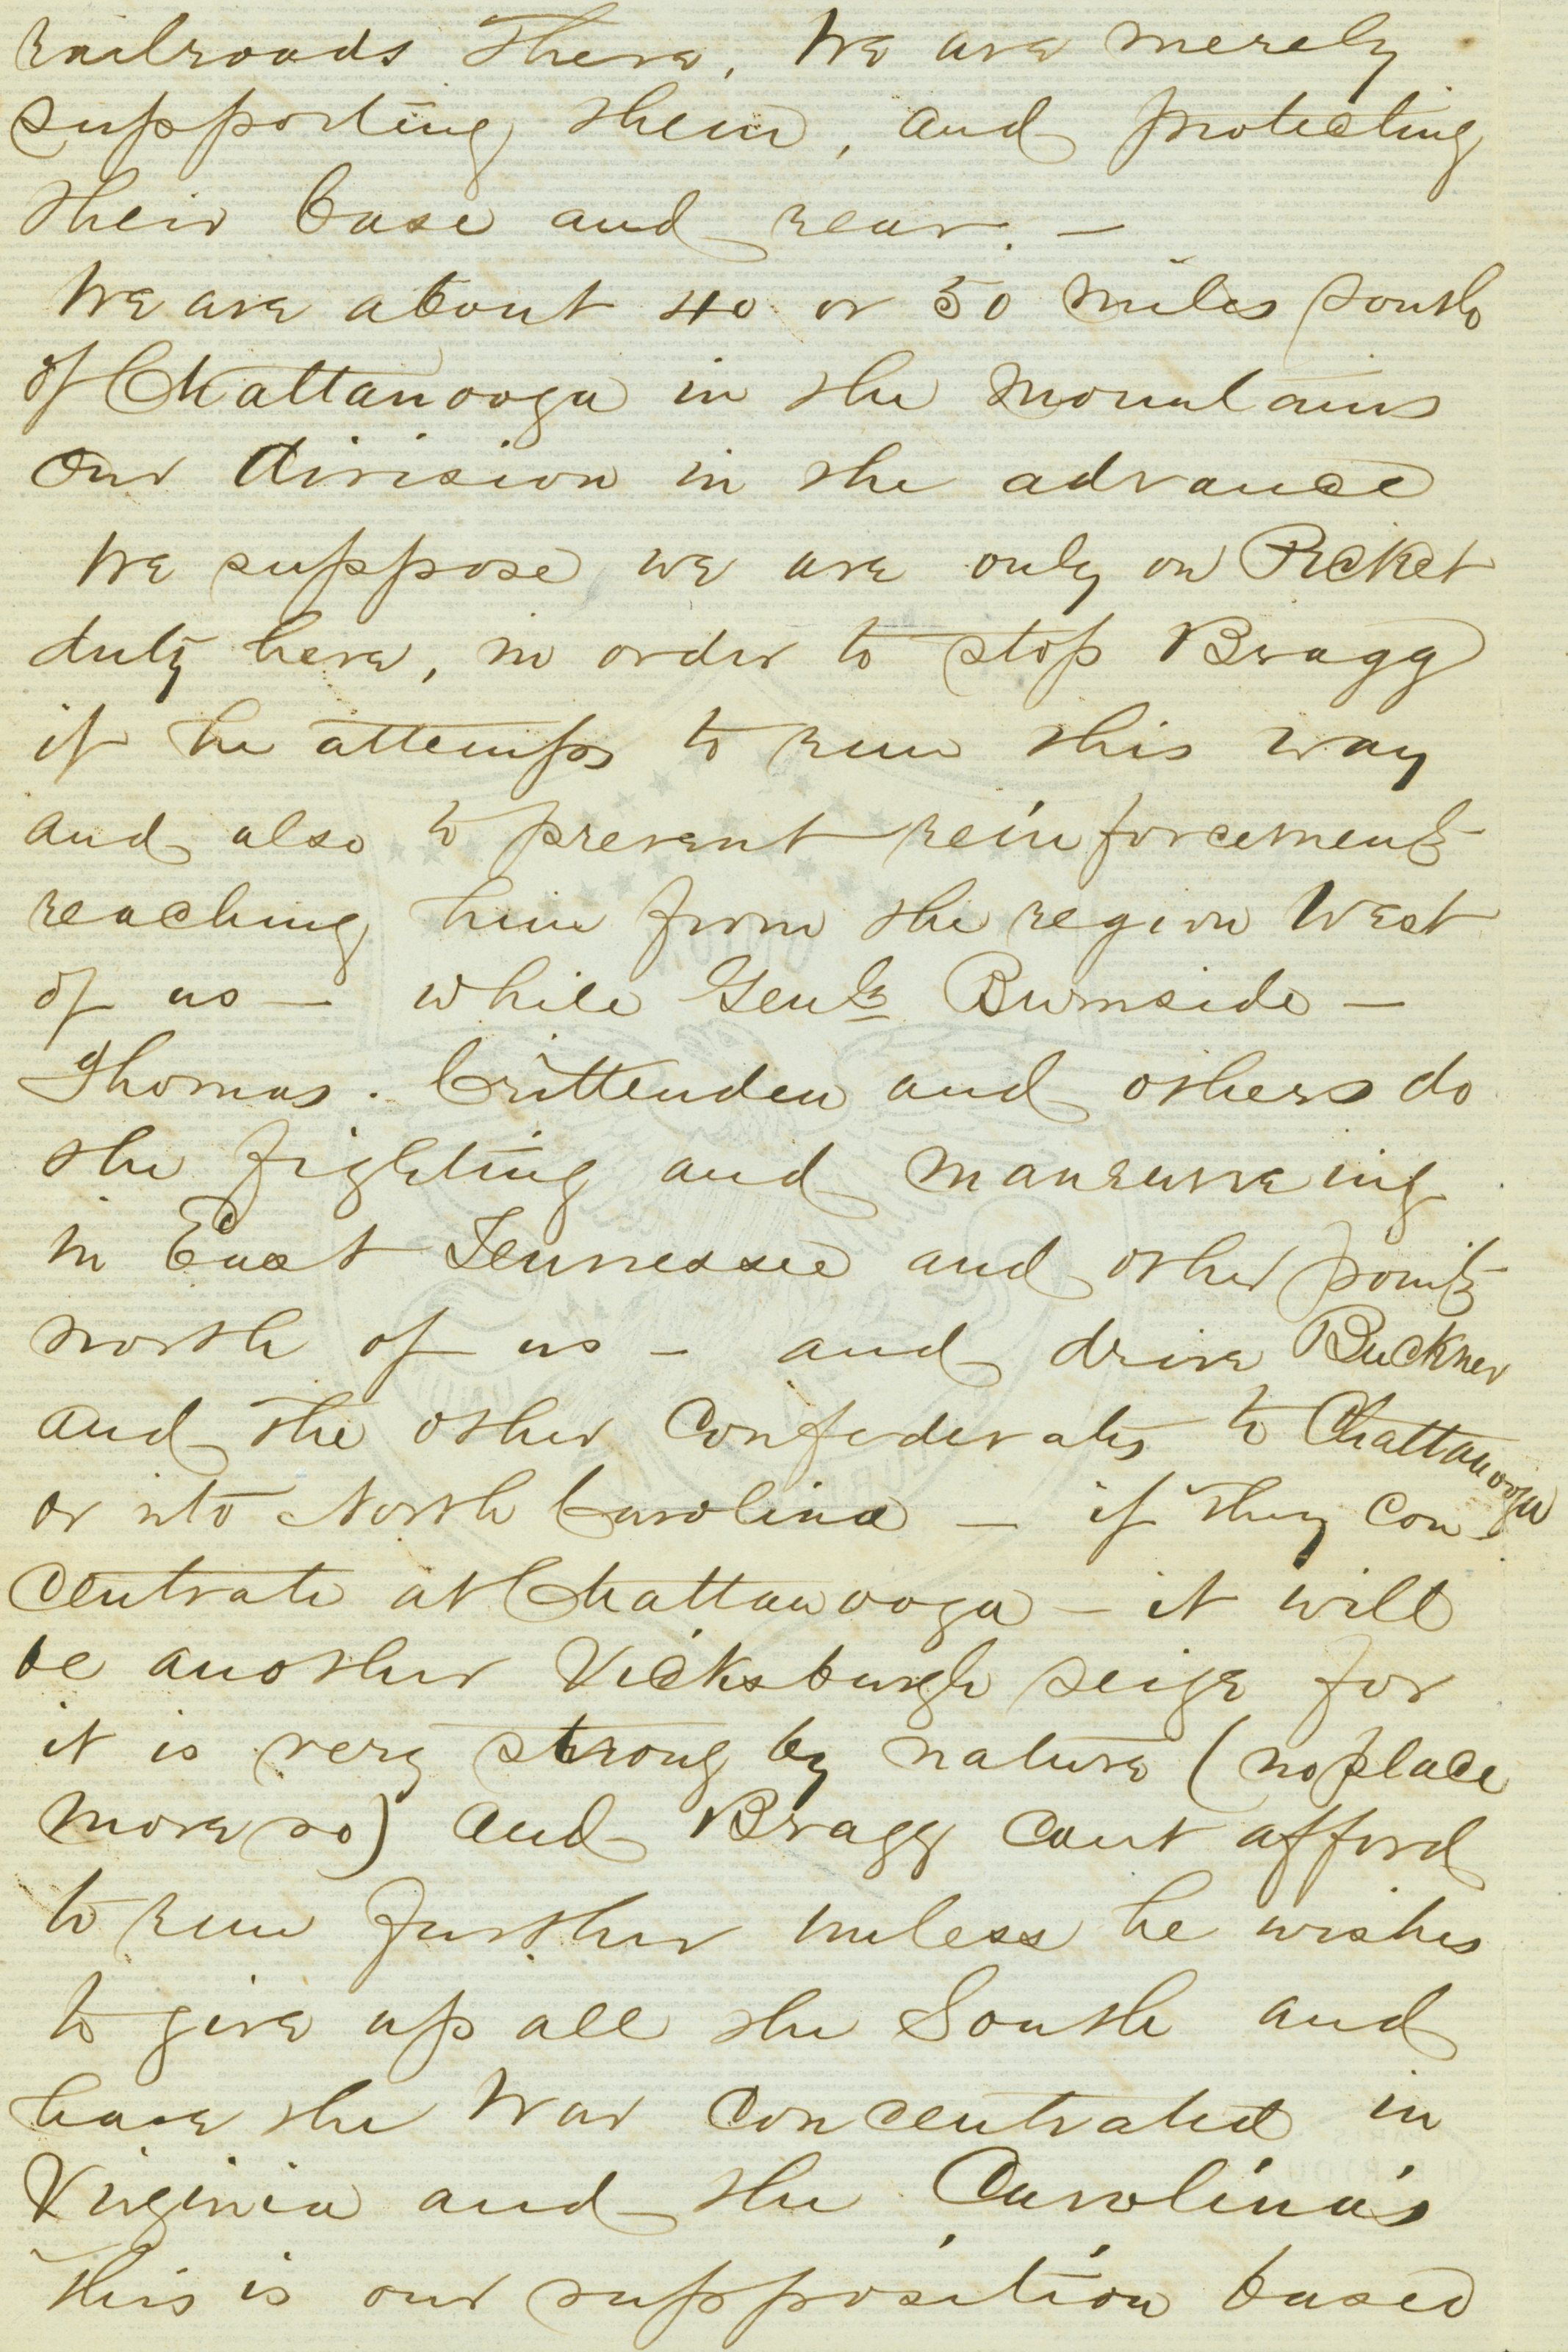 railroads there, We are merely
supporting them, and protecting
their base and rear. —
We are about 40 or 50 miles south
of Chattanooga in the mountains
our division in the advance
We suppose we are only on Picket
duty here, in order to stop Bragg
if he attemps to run this way
and also to prevent reinforcements
reaching him from the region West
of us — while Genls Burnside —
Thomas. Crittenden and others do
the fighting and maneuvreing
in East Tennessee and other points
north of us — and drive Buckner
and the other Confederates to Chattanooga
or into North Carolina — if they con-
centrate at Chattanooga — it will
be another Vicksburgh seige for
it is very strong by nature (no place
more so) and Bragg cant afford
to run further unless he wishes
to give up all the South and
have the War concentrated in
Virginia and the Carolina's
This is our supposition based